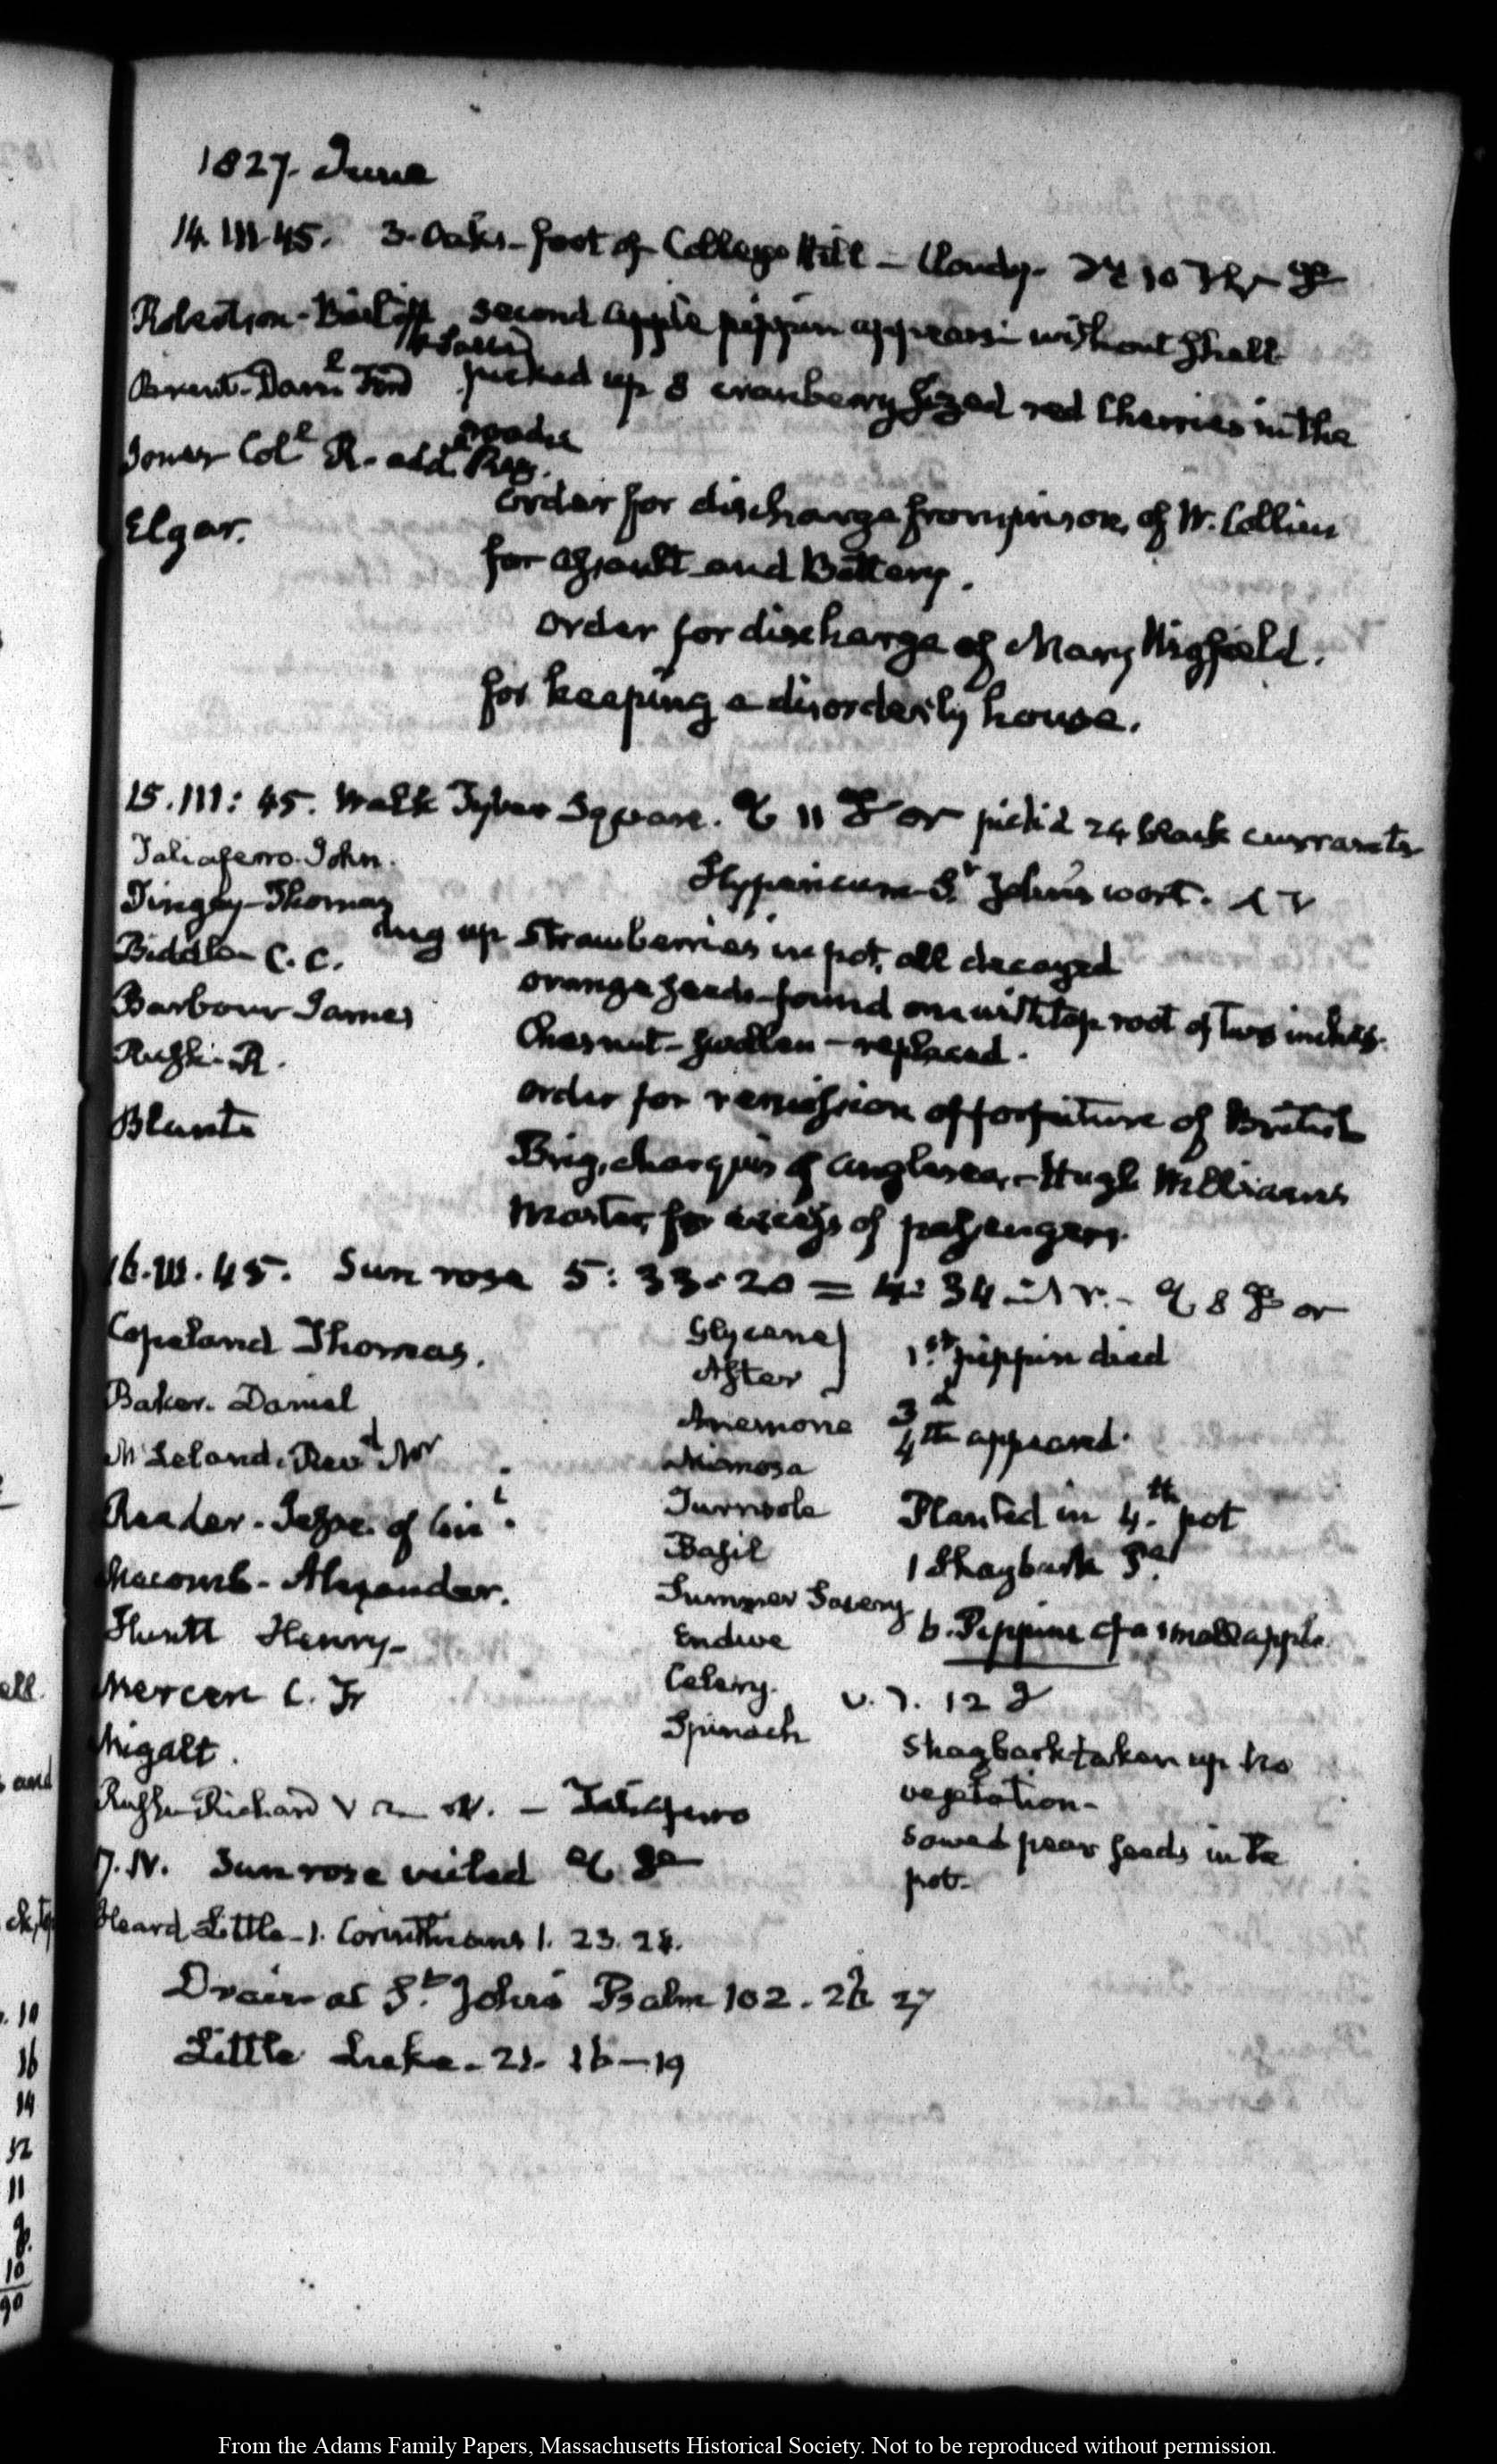 1827. June
14. III. 45. 3. Oaks - foot of College Hill - Cloudy.
Robertson - second apple pippin appears without shell
Brent. picked up 8 cranberry sized red Cherries in the
roads
Jones Col.l R. add.
order for discharge from prison, of W. Collins
Elgar.
for assault and Battery.
order for discharge of Mary Wigfield.
for keeping a disorderly house.
15. III: 45. Walk Tyber Square. 11 or pick'd 24 black currants
Taliaferro. John.
Hypericum - S.t John's wort.
Tingey - Thomas
dug up Strawberries in pot, all decayed
Biddle - C. C.
orange seeds - found one with top root of two inches.
Barbour James
Chesnut - swollen - replaced.
Rush - R.
order for remission of forfeiture of British
Blunt
Brig, of Anglesea, - Hugh Williams
Master, for excess of passengers.
16. III. 45. Sun rose 5: 33. 20 = 4: 34 8 or
Copeland Thomas.
Glycene
After
1.st pippin died
Baker. Daniel
Anemone
3.d
4th appeared.
McLeland. Rev.d Mr
Mimosa
Turnsole
Planted in 4.th pot
Reader - of
Basil
1 Shagbark
Macomb - Alexander.
Summer Savory
6. Pippins of a small apple.
Huntt Henry -
Endive
Mercer C. F.
Celery.
12
Wigalt.
Spinach
Shagbark taken up no
vegetation -
Rush Richard - Taliaferro
sowed pear seeds in the
pot -
17. IV. Sun rose veiled
Heard Little - 1. Corinthians 1. 23. 24.
S.t John's Psalm 102. 26 27
Little Luke - 21. 16 - 19
ell.
and
10
16
14
12
11
9.
10
90
From the Adams Family Papers, Massachusetts Historical Society. Not to be reproduced without permission.